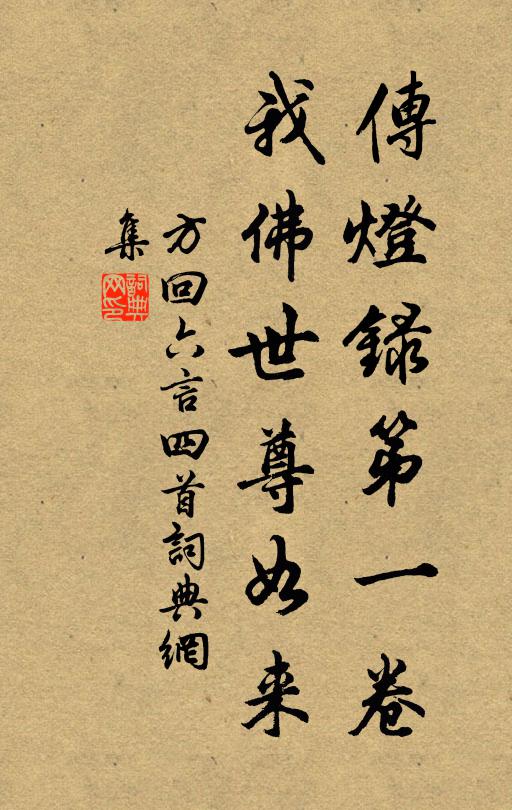 傳燈錄第一卷
我佛世尊如来
方回六言四首詞典網
集
詞典网印